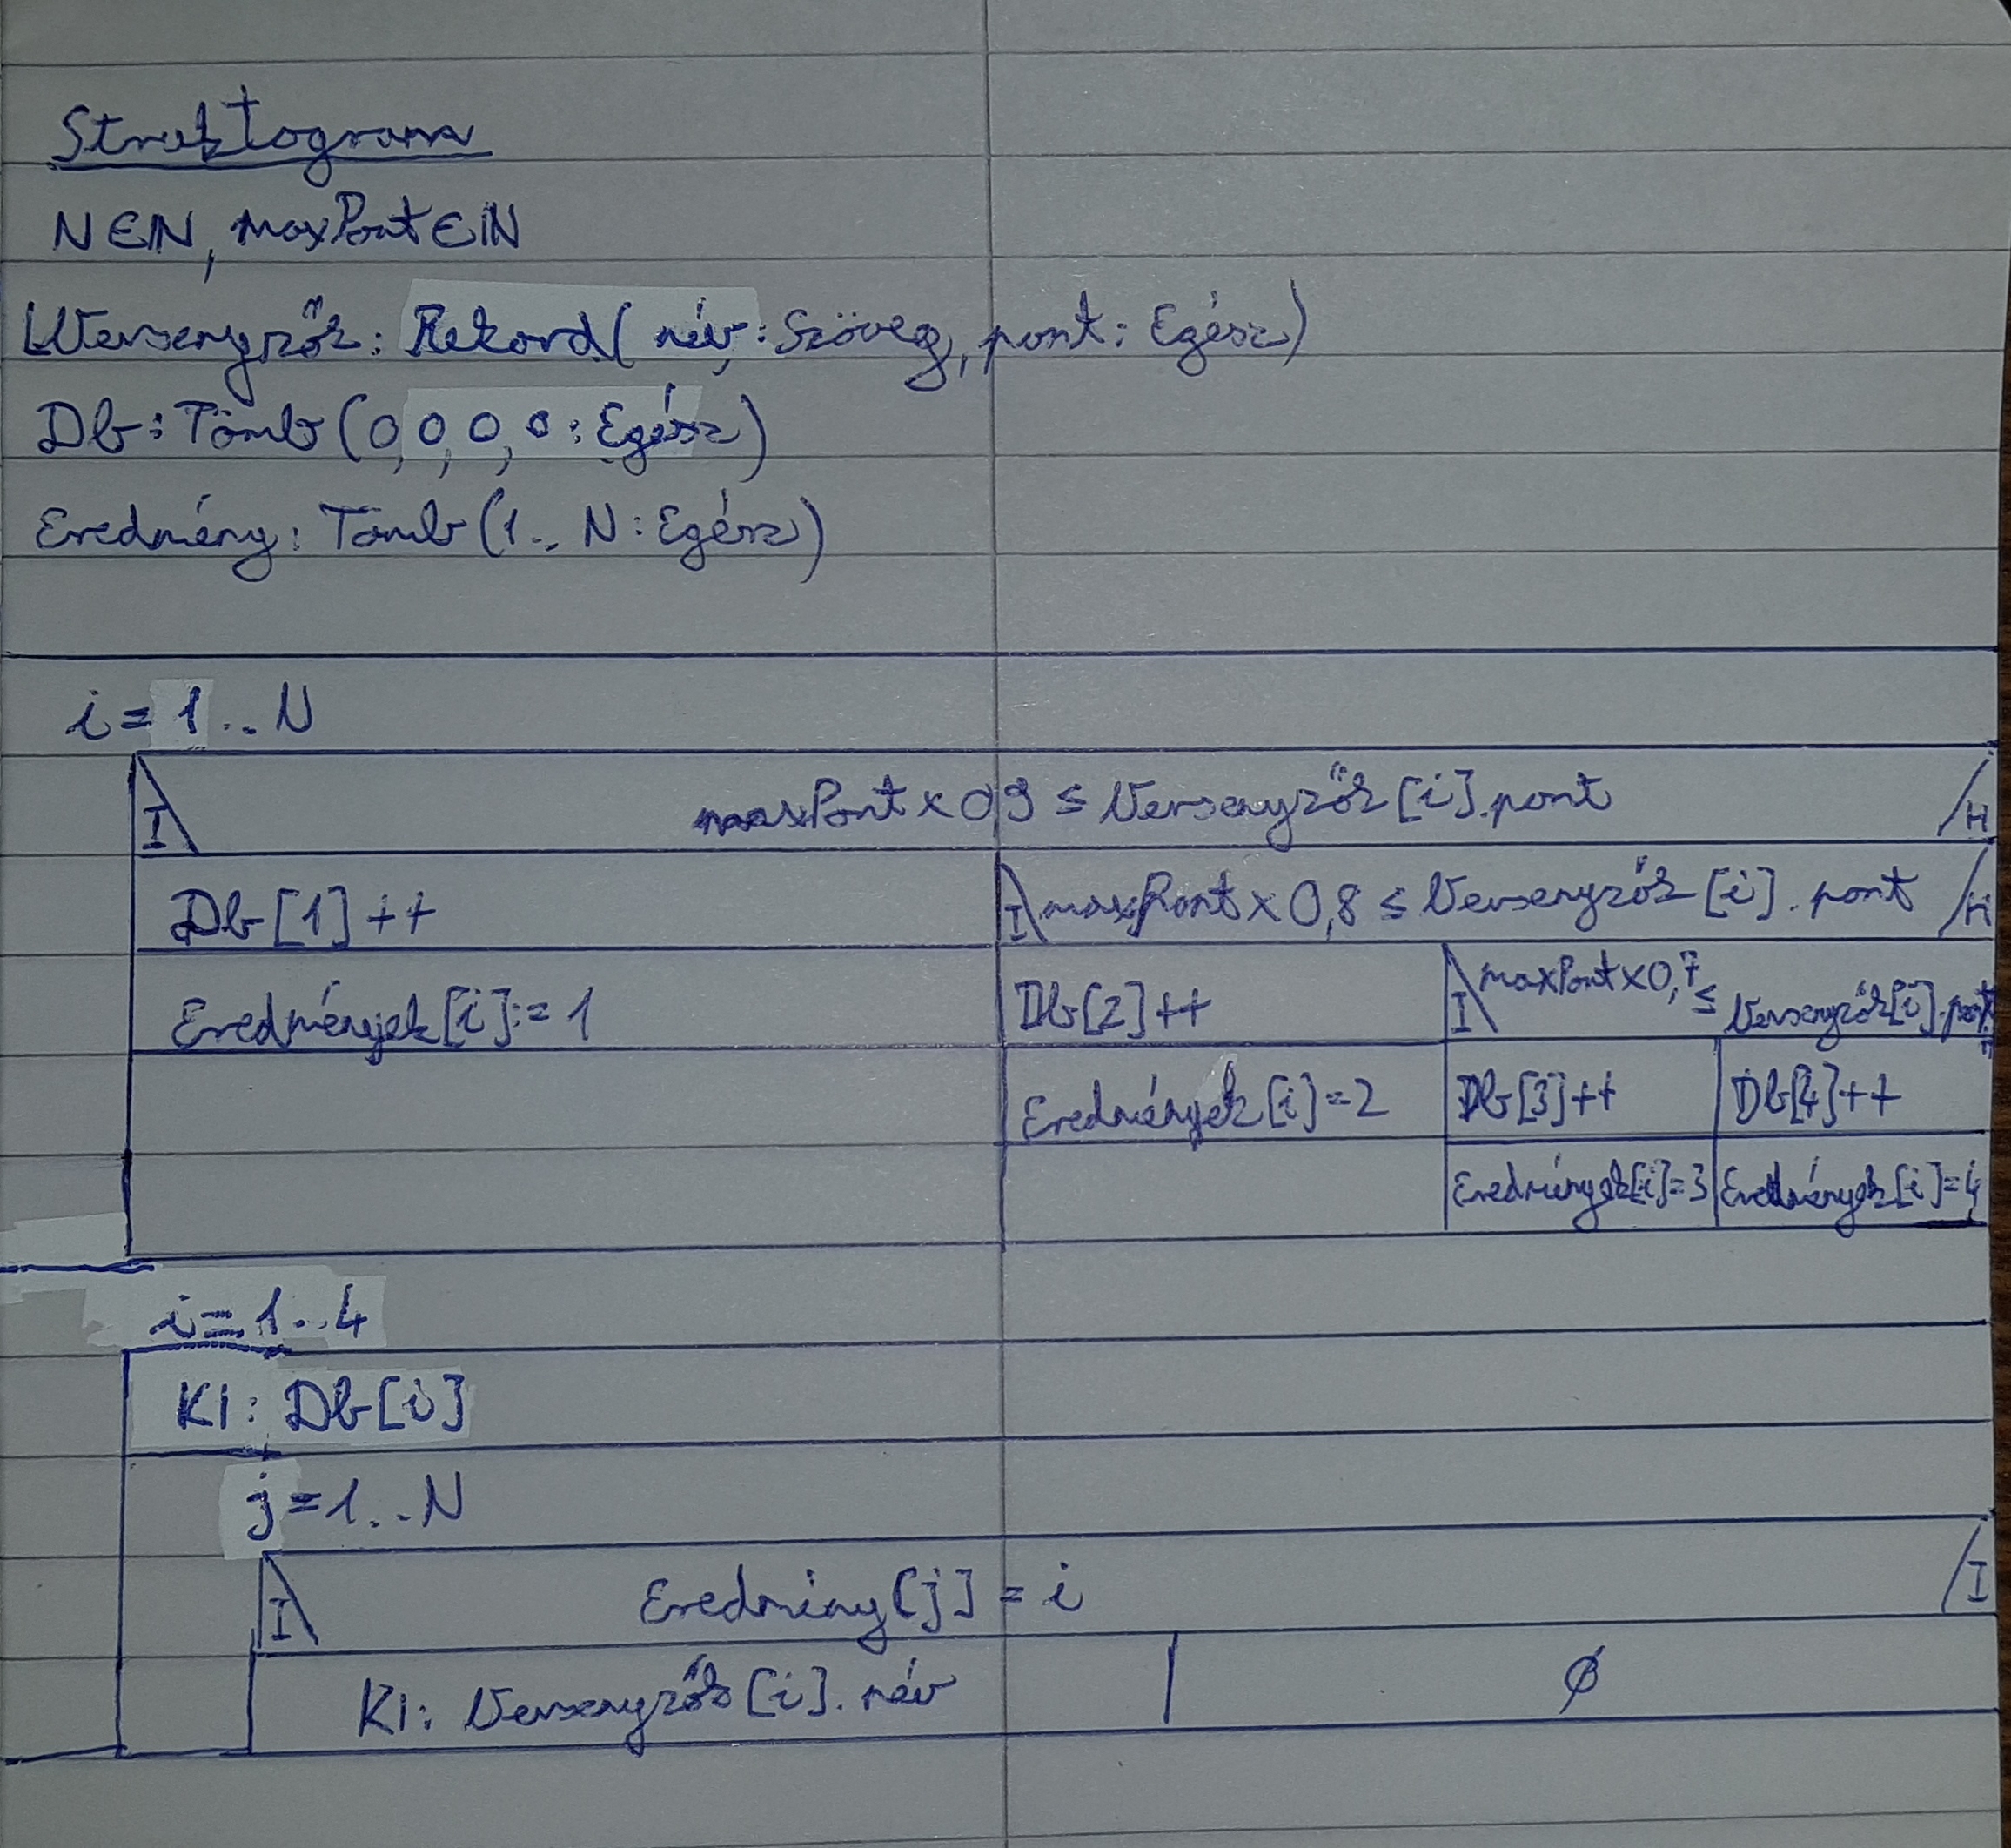 Struktogram
N∈ℕ, maxPont∈ℕ
Versenyzők: Rekord( név: Szöveg, pont: Egész)
Db: Tömb(0,0,0,0: Egész)
Eredmény: Tömb(1..N: Egész)
i=1..N
I maxPont×0,9 ≤ Versenyzők[i].pont H
Db[1]++ I maxPont×0,8 ≤ Versenyzők[i].pont H
Eredmények[i]:=1 Db[2]++ I maxPont×0,7 ≤ Versenyzők[i].pont
Eredmények[i]=2 Db[3]++ Db[4]++
Eredmények[i]=3 Eredmények[i]=4
i=1..4
KI: Db[i]
j=1..N
I Eredmény[j]=i I
KI: Versenyzők[i].név Ø